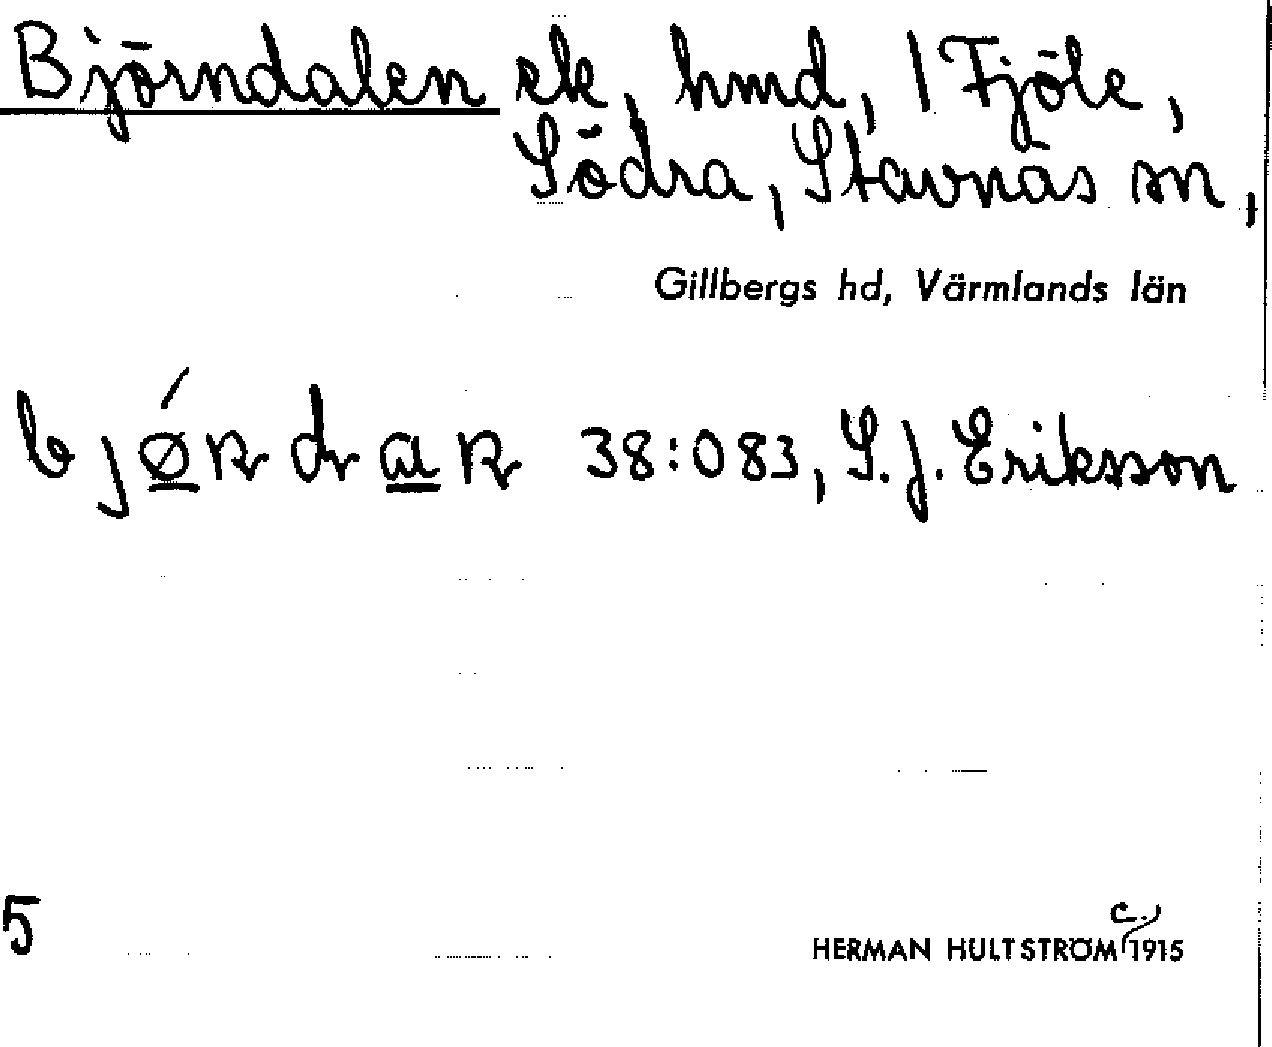 Björndalen ek, hmd, 1 Fjöle,
Södra, Stavnäs sn,
Gillbergs hd, Värmlands län
38:083, S. J. Eriksson
5
c.
HERMAN HULTSTRÖM 1915